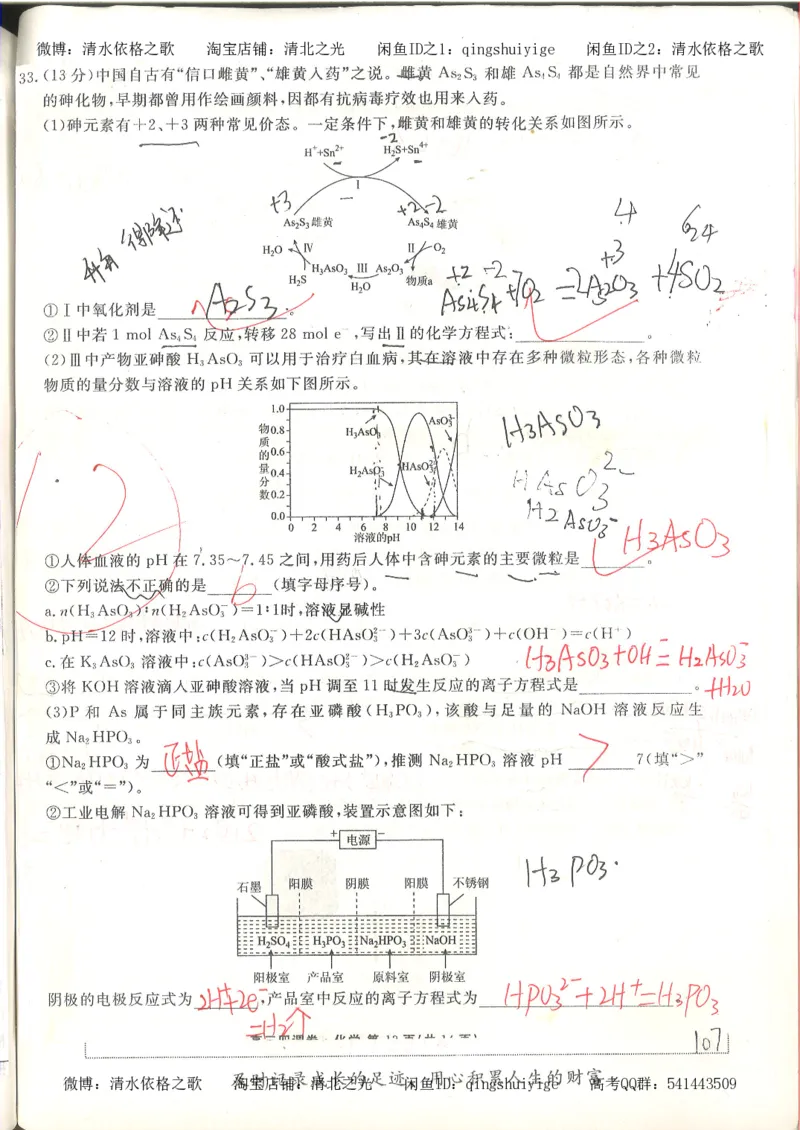 微博：清水依格之歌 淘宝店铺：清北之光 闲鱼ID之1：qingshuiyige 闲鱼ID之2：清水依格之歌
33.(13分)中国自古有“信口雌黄”、“雄黄入药”之说。雌黄 As₂S₃ 和雄 As₄S₄ 都是自然界中常见
的砷化物,早期都曾用作绘画颜料,因都有抗病毒疗效也用来入药。
(1)砷元素有+2、+3两种常见价态。一定条件下,雌黄和雄黄的转化关系如图所示。
-2
H⁺+Sn²⁺ H₂S+Sn⁴⁺
I
+3 +2 -2
As₂S₃ 雌黄 As₄S₄ 雄黄
H₂O IV II O₂
H₃AsO₃ III As₂O₃ 物质a
H₂S H₂O
4 624
+2 -2 +3
As₄S₄+7O₂=2As₂O₃+4SO₂
①Ⅰ中氧化剂是 As₂S₃ 。
②Ⅱ中若 1 mol As₄S₄ 反应,转移 28 mol e⁻,写出Ⅱ的化学方程式: 。
(2)Ⅲ中产物亚砷酸 H₃AsO₃ 可以用于治疗白血病,其在溶液中存在多种微粒形态,各种微粒
物质的量分数与溶液的 pH 关系如下图所示。
物质的量分数
1.0
0.8
0.6
0.4
0.2
0.0
H₃AsO₃ AsO₃³⁻
H₂AsO₃⁻ HAsO₃²⁻
0 2 4 6 8 10 12 14
溶液的pH
H₃AsO₃
HAsO₃²⁻
H₂AsO₃⁻
12
①人体血液的 pH 在 7.35～7.45 之间,用药后人体中含砷元素的主要微粒是 H₃AsO₃ 。
②下列说法不正确的是 b (填字母序号)。
a.n(H₃AsO₃):n(H₂AsO₃⁻)=1:1时,溶液显碱性
b.pH=12 时,溶液中:c(H₂AsO₃⁻)+2c(HAsO₃²⁻)+3c(AsO₃³⁻)+c(OH⁻)=c(H⁺)
c.在 K₃AsO₃ 溶液中:c(AsO₃³⁻)>c(HAsO₃²⁻)>c(H₂AsO₃⁻)
H₃AsO₃+OH⁻=H₂AsO₃⁻
③将 KOH 溶液滴入亚砷酸溶液,当 pH 调至 11 时发生反应的离子方程式是 。+H₂O
(3)P 和 As 属于同主族元素,存在亚磷酸(H₃PO₃),该酸与足量的 NaOH 溶液反应生
成 Na₂HPO₃。
①Na₂HPO₃ 为 正盐 (填“正盐”或“酸式盐”),推测 Na₂HPO₃ 溶液 pH > 7(填“>”
“<”或“=”)。
②工业电解 Na₂HPO₃ 溶液可得到亚磷酸,装置示意图如下:
+ 电源 −
H₃PO₃
石墨 阳膜 阴膜 阳膜 不锈钢
H₂SO₄ H₃PO₃ Na₂HPO₃ NaOH
阳极室 产品室 原料室 阴极室
阴极的电极反应式为 2H⁺+2e⁻ ,产品室中反应的离子方程式为 HPO₃²⁻+2H⁺=H₃PO₃
=H₂↑
107
及时记录成长的足迹 用心积累人生的财富
微博：清水依格之歌 淘宝店铺：清北之光 闲鱼ID：qingshuiyige 高考QQ群：541443509